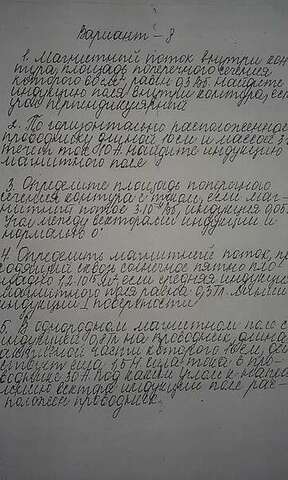 Вариант - 8
1. Магнитный поток внутри кон
тура, площадь поперечного сечения
которого 60 см² равен 0,3 Вб. Найдите
индукцию поля внутри контура, есл
угол перпендикулярный
2. По горизонтально расположенно
проводнику длиной
течет ток Найдите индукцию
магнитного поля
3. Определите площадь поперечного
сечения контура с током, если маг-
нитный поток индукция
угол между векторами индукции и
нормалью 0°
4. Определить магнитный поток, пр
сквозь солнечное пятно пло
если средняя индукция
магнитного пятна равна Линии
индукции ⊥ поверхности
5. В однородном магнитном поле с
индукцией на проводник, длина
активной части которого дей
ствует сила сила тока в про
воднике 30 А. Под каким углом к напра
лению вектора индукции поле рас-
положен проводник